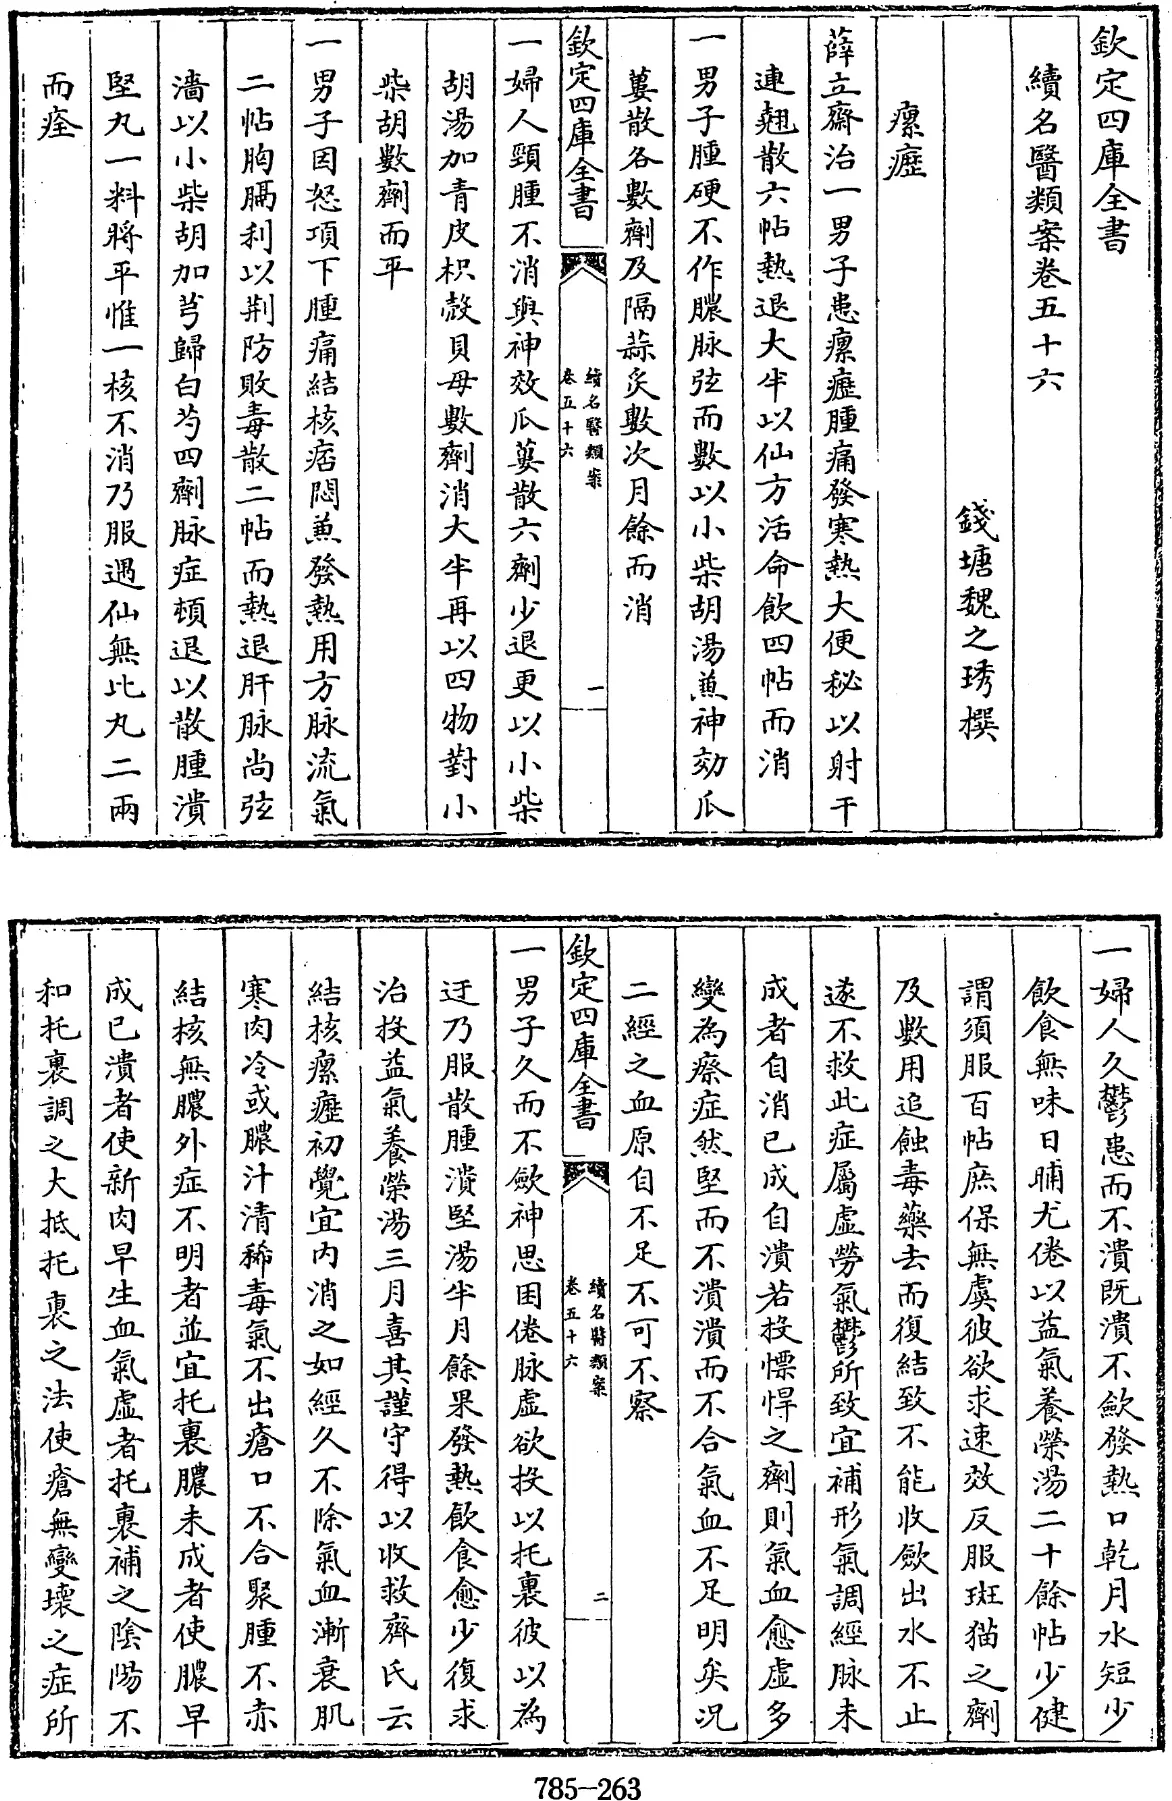 欽定四庫全書
續名醫類案卷五十六
錢塘魏之琇撰
瘰癧
薛立齋治一男子患瘰癧腫痛發寒熱大便秘以射干
連翹散六帖熱退大半以仙方活命飲四帖而消
一男子腫硬不作膿脉弦而數以小柴胡湯蒹神効瓜
蔞散各數劑及隔蒜炙數次月餘而消
欽定四庫全書
續名醫類案
卷五十六
一
一婦人頸腫不消與神效瓜蔞散六劑少退更以小柴
胡湯加青皮枳殼貝母數劑消大半再以四物對小
柴胡數劑而平
一男子因怒項下腫痛結核痞悶蒹發熱用方脉流氣
二帖胸膈利以荆防敗毒散二帖而熱退肝脉尚弦
濇以小柴胡加芎歸白芍四劑脉症頓退以散腫潰
堅丸一料將平惟一核不消乃服遇仙無比丸二兩
而痊
一婦人久鬱患而不潰既潰不歛發熱口乾月水短少
飲食無味日晡尤倦以益氣養榮湯二十餘帖少健
謂須服百帖庶保無虞彼欲求速效反服斑猫之劑
及數用追蝕毒藥去而復結致不能收歛出水不止
遂不救此症屬虛勞氣鬱所致宜補形氣調經脉未
成者自消已成自潰若投慓悍之劑則氣血愈虛多
變為瘵症然堅而不潰潰而不合氣血不足明矣况
二經之血原自不足不可不察
欽定四庫全書
續名醫類案
卷五十六
二
一男子久而不歛神思困倦脉虛欲投以托裏彼以為
迂乃服散腫潰堅湯半月餘果發熱飲食愈少復求
治投益氣養榮湯三月喜其謹守得以收救齊氏云
結核瘰癧初覺宜内消之如經久不除氣血漸衰肌
寒肉冷或膿汁清稀毒氣不出瘡口不合聚腫不赤
結核無膿外症不明者並宜托裏膿未成者使膿早
成已潰者使新肉早生血氣虛者托裏補之陰陽不
和托裏調之大抵托裏之法使瘡無變壞之症所
785-263